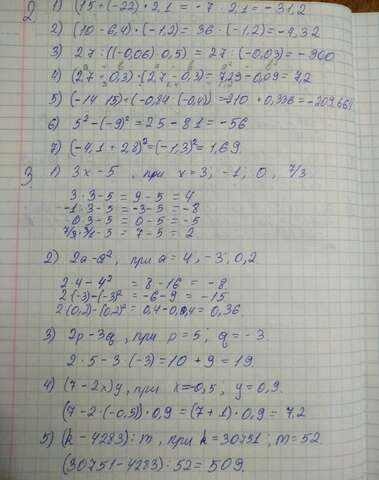 2) 1) (15+(-22)·2,1 = -7 · 2,1 = -31,2
2) (10-6,4)·(-1,2) = 36·(-1,2) = -4,32
3) 27:((-0,06)·0,5) = 27:(-0,03) = -900
4) (2,7+0,3)·(2,7-0,3) = 7,29-0,09 = 7,2
5) (-14·15)+(-0,84·(-0,4)) = -210+0,336 = -209,664
6) 5²-(-9)² = 25-81 = -56
7) (-4,1+2,8)² = (-1,3)² = 1,69
3. 1) 3x-5, при x=3; -1; 0, 7/3
3·3-5 = 9-5 = 4
-1·3-5 = -3-5 = -8
0·3-5 = 0-5 = -5
7/3·3/1-5 = 7-5 = 2
2) 2a-a², при a=4, -3, 0,2
2·4-4² = 8-16 = -8
2·(-3)-(-3)² = -6-9 = -15
2·(0,2)-(0,2)² = 0,4-0,04 = 0,36.
3) 2p-3q, при p=5, q=-3
2·5-3·(-3) = 10+9 = 19
4) (7-2x)y, при x=-0,5, y=0,9.
(7-2·(-0,5))·0,9 = (7+1)·0,9 = 7,2
5) (k-4283):m, при k=30751, m=52.
(30751-4283):52 = 509.